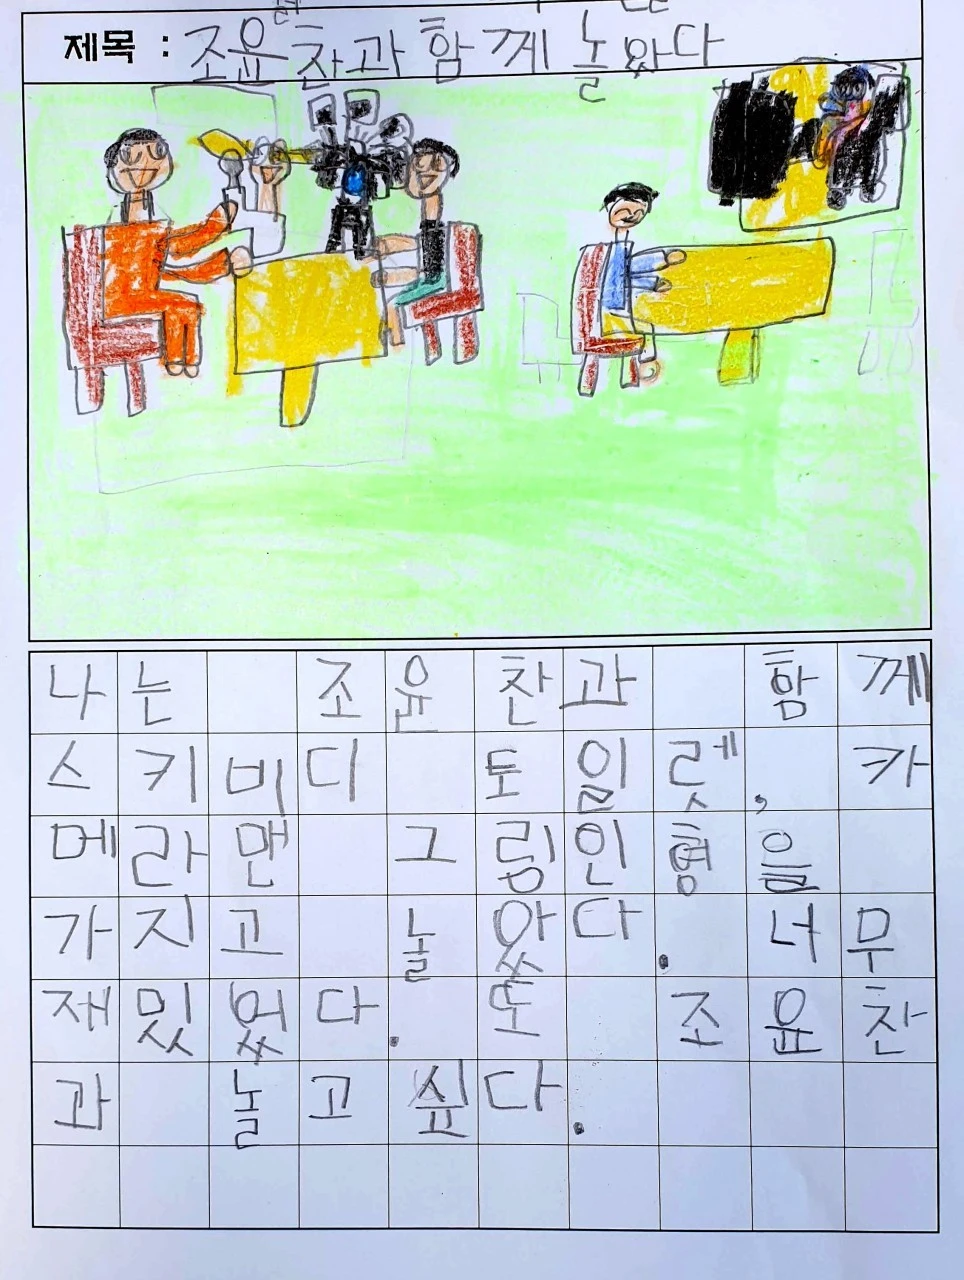 제목 : 조윤찬과 함께 놀았다
나는 조윤찬과 함께
스키비디 토일렛, 카
메라맨 그림인형을
가지고 놀았다. 너무
재밌었다. 또 조윤찬
과 놀고싶다.